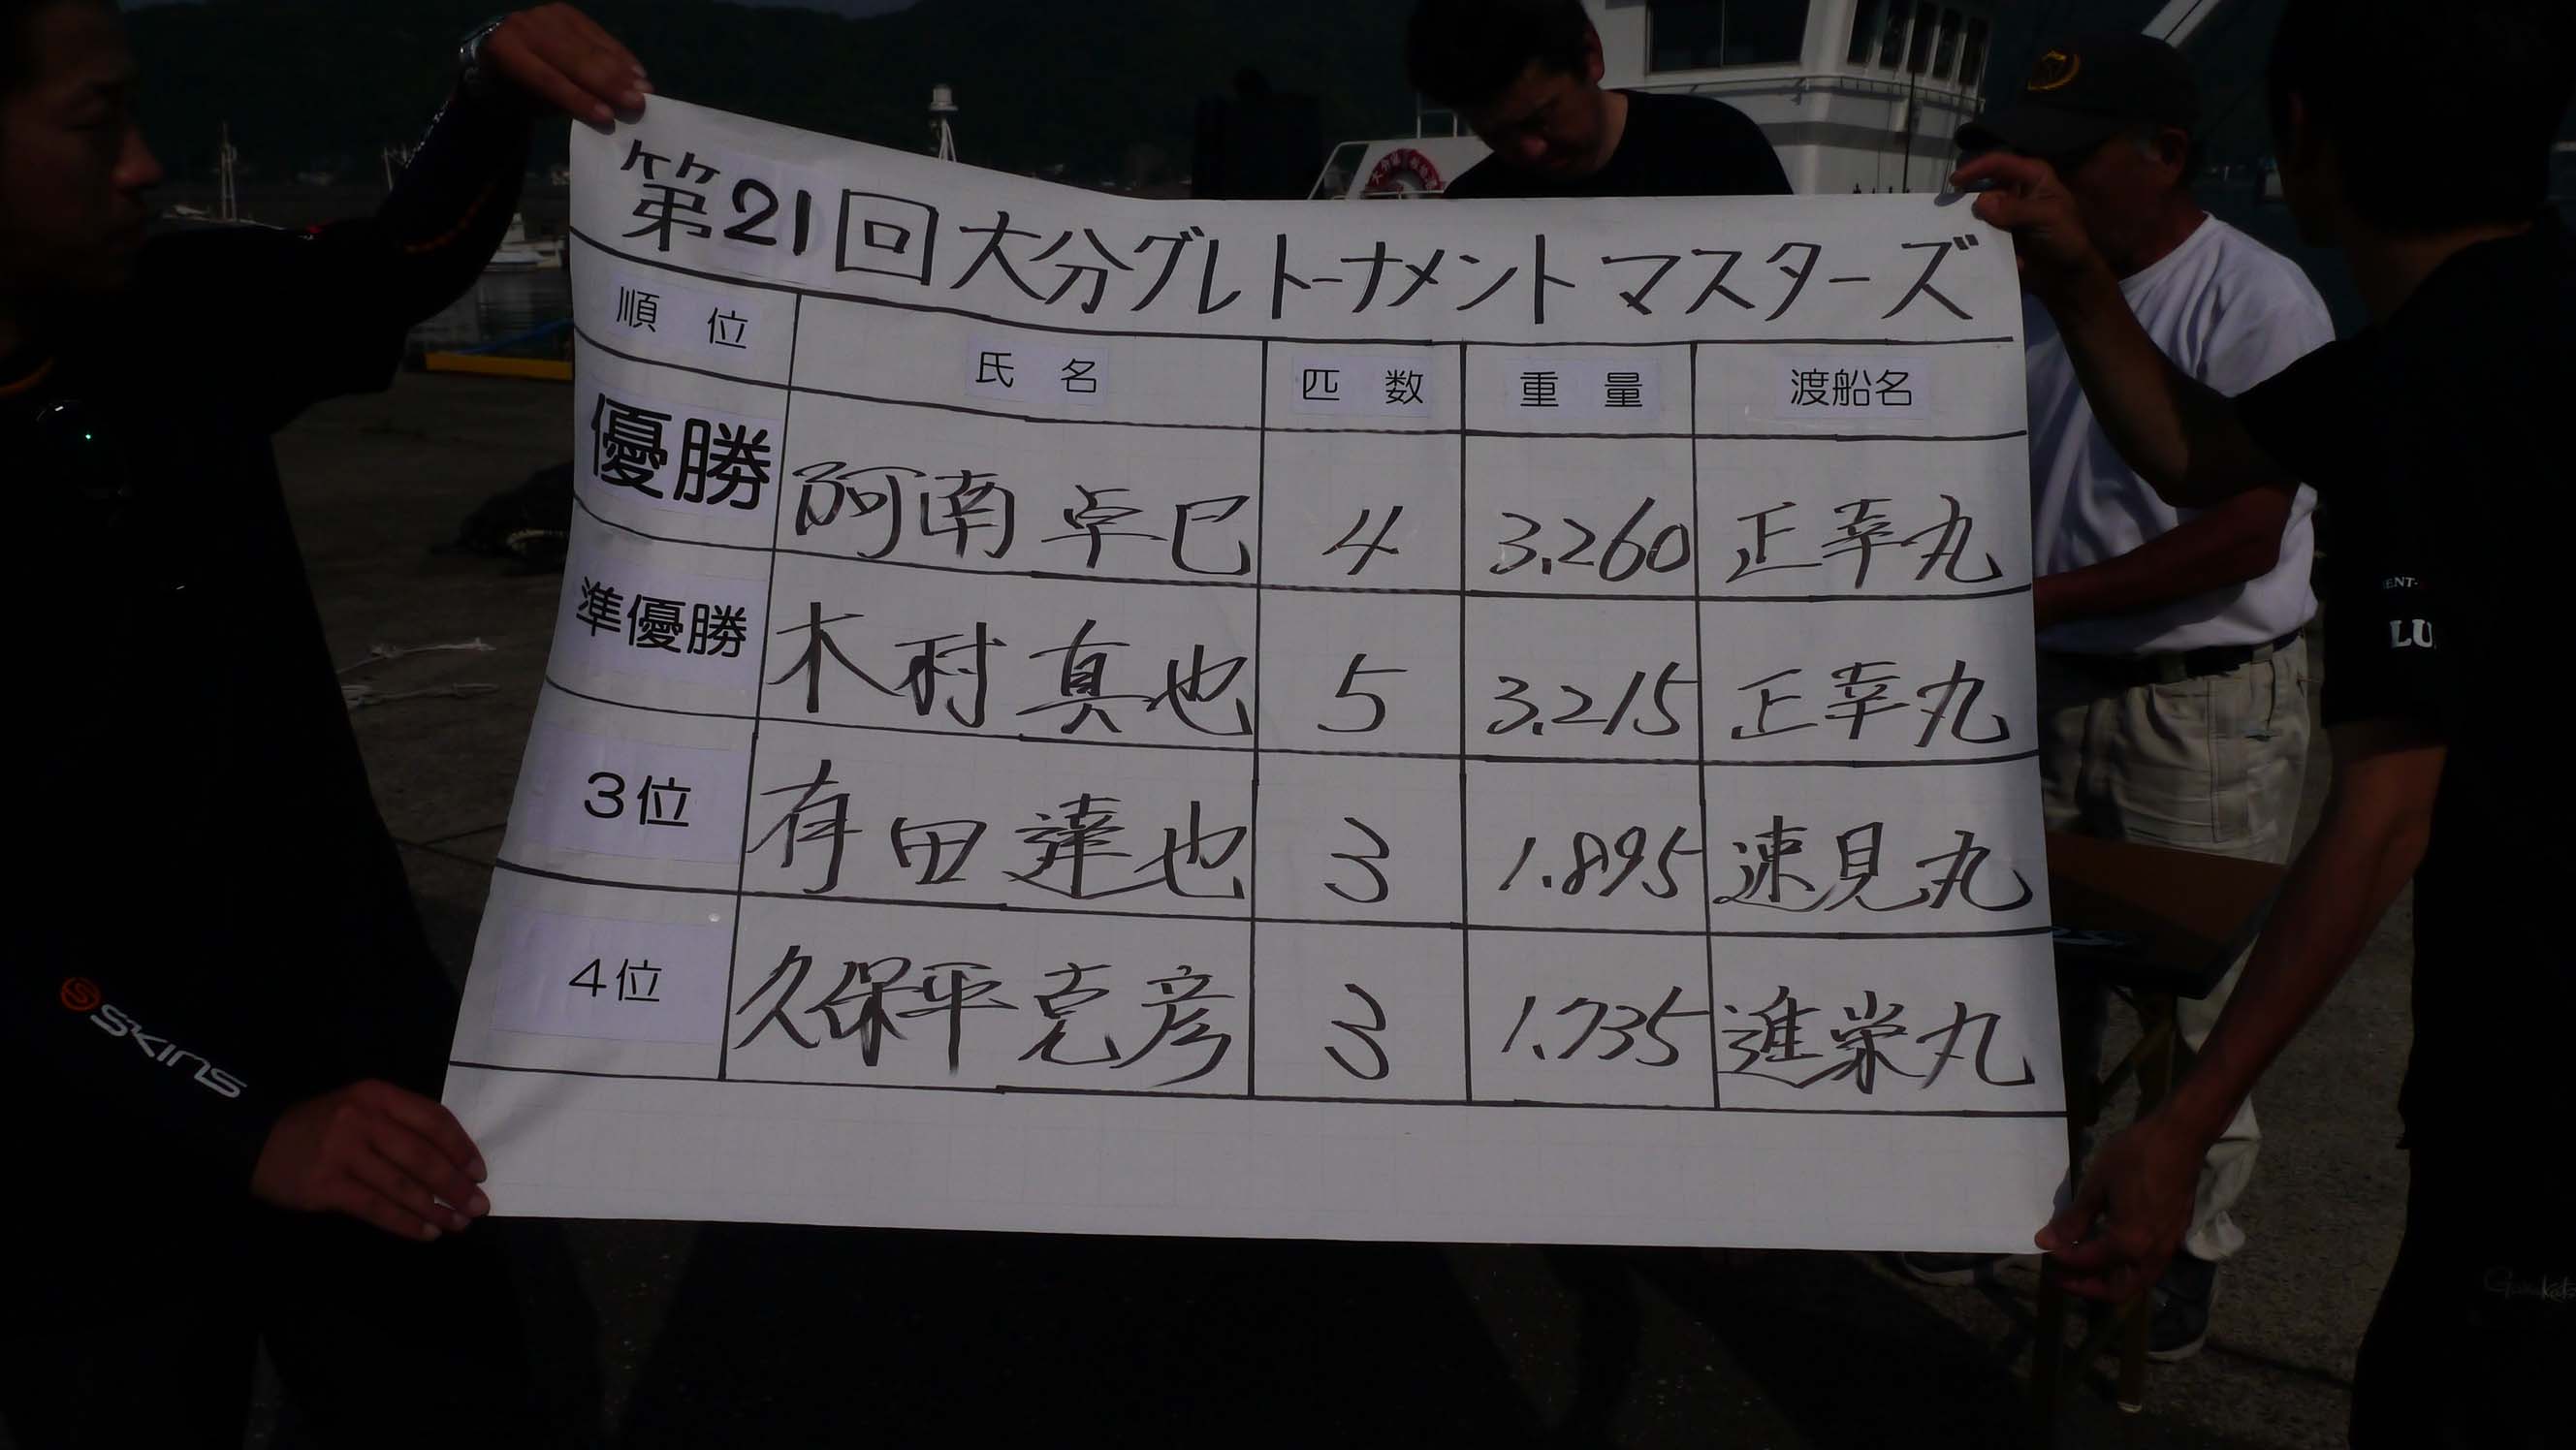 第21回大分グレトーナメントマスターズ
順位 氏名 匹数 重量 渡船名
優勝 阿南卓巳 4 3.260 正幸丸
準優勝 木村真也 5 3.215 正幸丸
3位 有田達也 3 1.895 速見丸
4位 久保平克彦 3 1.735 進栄丸
SKINS
ENT-
LU